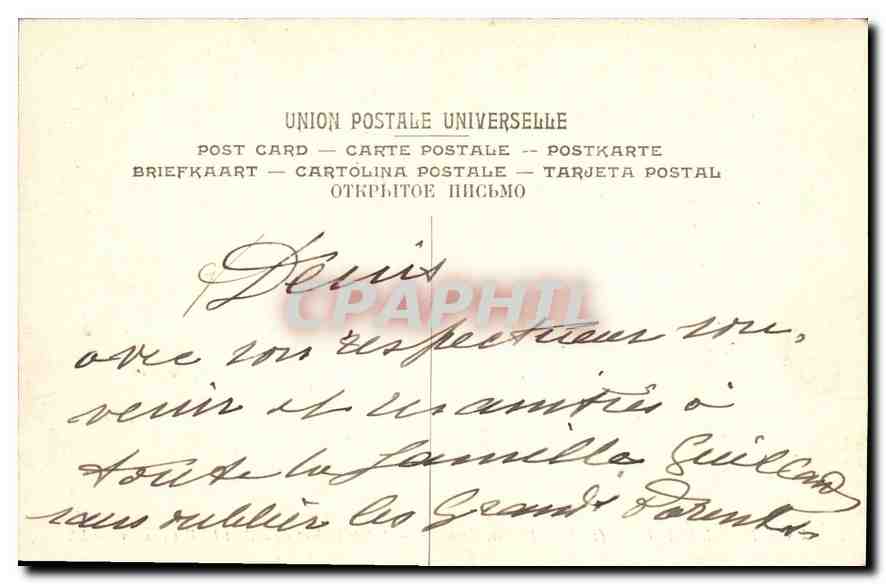 UNION POSTALE UNIVERSELLE
POST CARD — CARTE POSTALE -- POSTKARTE
BRIEFKAART — CARTOLINA POSTALE — TARJETA POSTAL
ОТКРЫТОЕ ПИСЬМО
Denis
CPAPHIL
avec son respectueux sou,
venir et ses amitiés à
toute la famille
sans oublier les Grands Parents